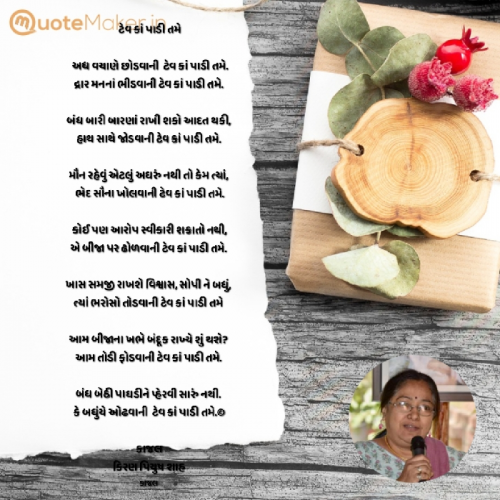 QuoteMaker.in
ટેવ કાં પાડી તમે
અધ વચાણે છોડવાની ટેવ કાં પાડી તમે.
દ્વાર મનનાં ભીડવાની ટેવ કાં પાડી તમે.
બંધ બારી બારણાં રાખી શકો આદત થકી,
હાથ સાથે જોડવાની ટેવ કાં પાડી તમે.
મૌન રહેવું એટલું અઘરું નથી તો કેમ ત્યાં,
ભેદ સૌના ખોલવાની ટેવ કાં પાડી તમે.
કોઈ પણ આરોપ સ્વીકારી શકાતો નથી,
એ બીજા પર ઢોળવાની ટેવ કાં પાડી તમે.
ખાસ સમજી રાખશે વિશ્વાસ, સોપી ને બધું,
ત્યાં ભરોસો તોડવાની ટેવ કાં પાડી તમે
આમ બીજાના ખભે બંદૂક રાખ્યે શું થશે?
આમ તોડી ફોડવાની ટેવ કાં પાડી તમે.
બંધ બેઠી પાઘડીને પ્હેરવી સારું નથી.
કે બધુંયે ઓઢવાની ટેવ કાં પાડી તમે.©
કાજલ
કિરણ પિયુષ શાહ
કાજલ